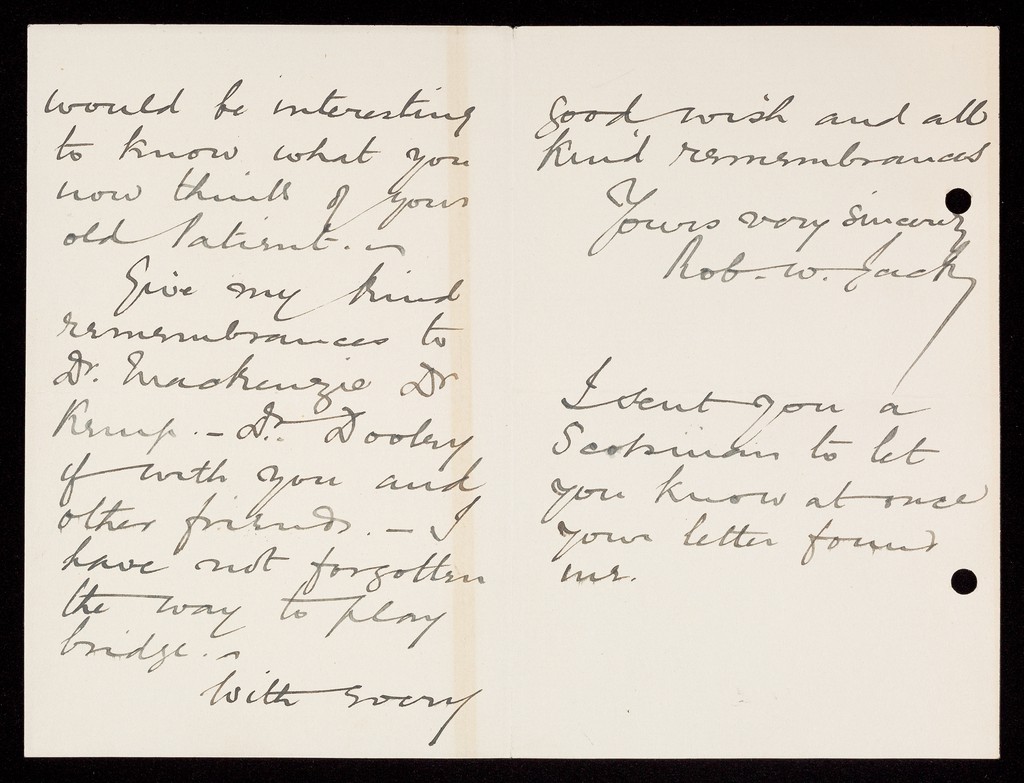 would be interesting
to know what you
now think of your
old Patient. –
Give my kind
remembrances to
Dr. Mackenzie Dr
Kemp. – Dr. Dooley
if with you and
other friends. – I
have not forgotten
the way to play
bridge. –
With every
good wish and all
kind remembrances
Yours very sincerely
Rob. W. Jack
I sent you a
Scotsman to let
you know at once
your letter found
me.